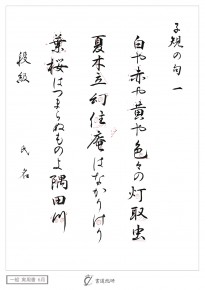 子規の句 一
白や赤や黄や色々の灯取虫
夏木立幻住庵はなかりけり
葉桜はつまらぬものよ隅田川
段級 氏名